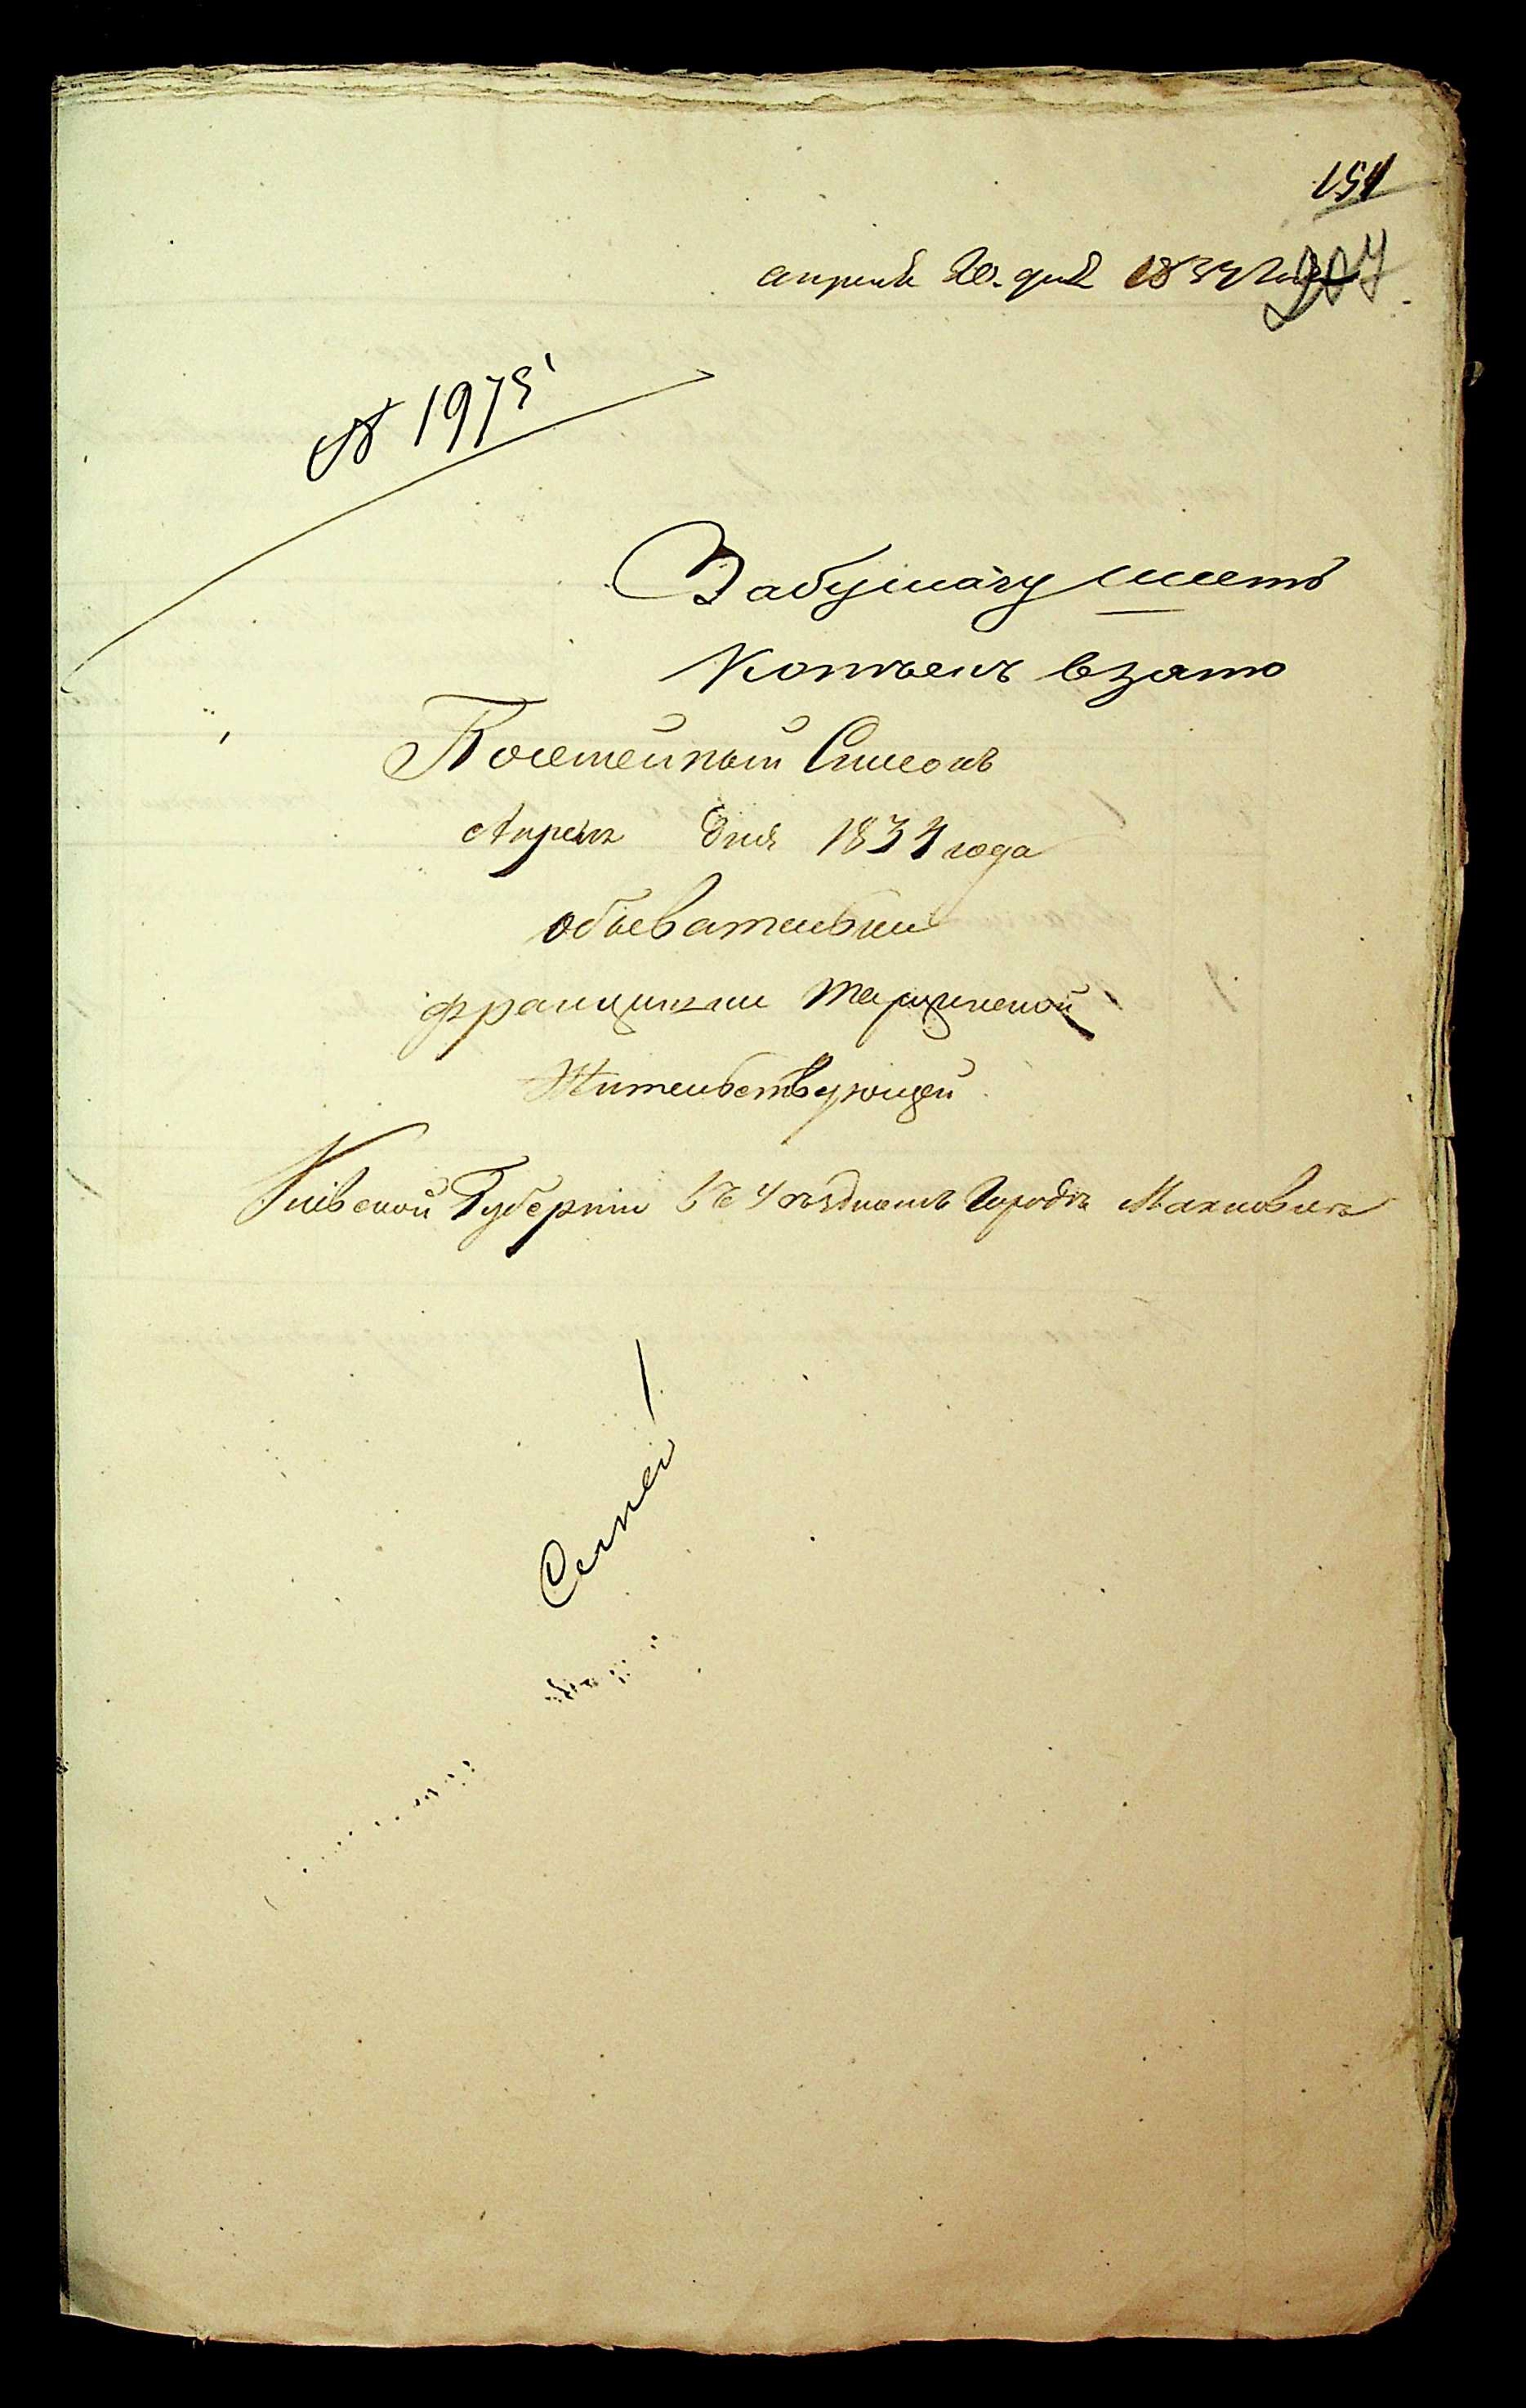 154
207
апреля 20. дня 1834 года
№ 1975
За бумагу шесть
Копѣекъ взято
Посемейный Списокъ
Апреля дня 1834 года
обывательки
францишки
Жительствующей
Кіевской Губерніи въ уѣздномъ Городѣ Махновкѣ